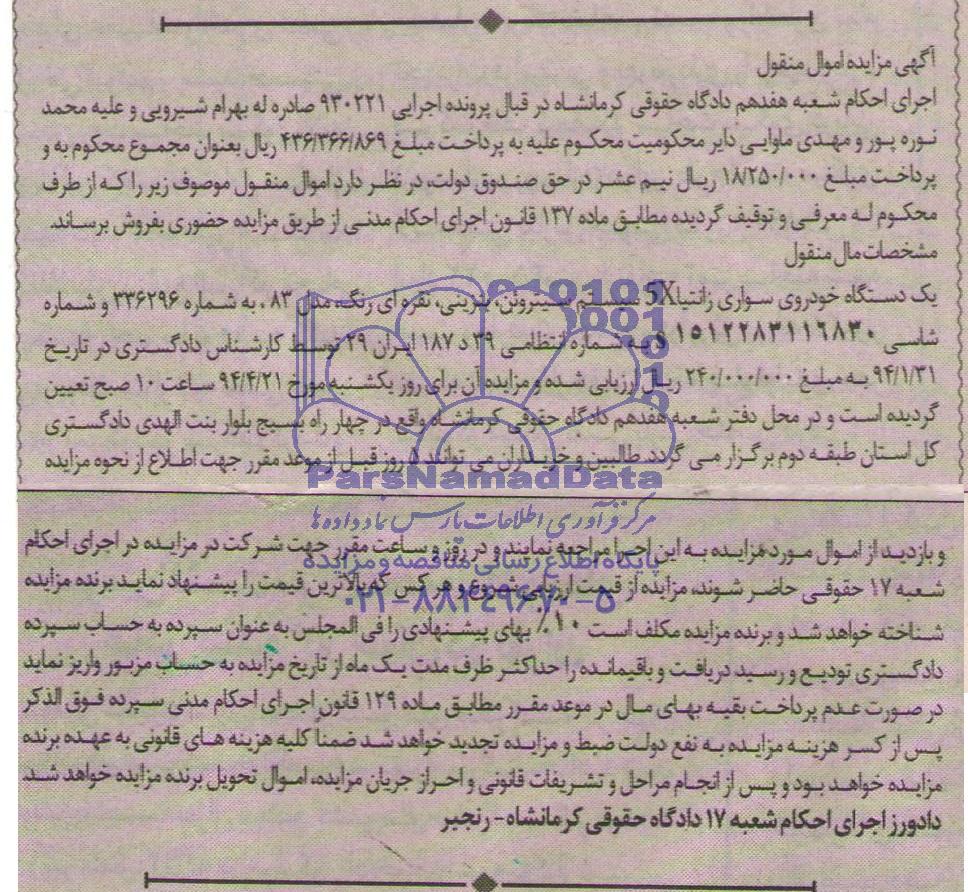 آگهی مزایده اموال منقول
اجرای احکام شعبه هفدهم دادگاه حقوقی کرمانشاه در قبال پرونده اجرایی ۹۳۰۲۲۱ صادره له بهرام شیرویی و علیه محمد
نوره پور و مهدی ماوایی دایر محکومیت محکوم علیه به پرداخت مبلغ ۴۳۶/۳۶۶/۸۶۹ ریال بعنوان مجموع محکوم به و
پرداخت مبلغ ۱۸/۲۵۰/۰۰۰ ریال نیم عشر در حق صندوق دولت، در نظر دارد اموال منقول موصوف زیر را که از طرف
محکوم له معرفی و توقیف گردیده مطابق ماده ۱۳۷ قانون اجرای احکام مدنی از طریق مزایده حضوری بفروش برساند.
مشخصات مال منقول
یک دستگاه خودروی سواری زانتیا SX سیستم سیتروئن، بنزینی، نقره ای رنگ، مدل ۸۳، به شماره ۳۳۶۲۹۶ و شماره
شاسی ۱۵۱۲۲۸۳۱۱۶۸۳۰ به شماره انتظامی ۳۹ د ۱۸۷ ایران ۲۹ توسط کارشناس دادگستری در تاریخ
۹۴/۱/۳۱ به مبلغ ۲۴۰/۰۰۰/۰۰۰ ریال ارزیابی شده و مزایده آن برای روز یکشنبه مورخ ۹۴/۴/۲۱ ساعت ۱۰ صبح تعیین
گردیده است و در محل دفتر شعبه هفدهم دادگاه حقوقی کرمانشاه واقع در چهار راه بسیج بلوار بنت الهدی دادگستری
کل استان طبقه دوم برگزار می گردد. طالبین و خریداران می توانند ۵ روز قبل از موعد مقرر جهت اطلاع از نحوه مزایده
ParsNamadData
مرکز فرآوری اطلاعات پارس نماد داده ها
و بازدید از اموال مورد مزایده به این اجرا مراجعه نمایند و در روز و ساعت مقرر جهت شرکت در مزایده در اجرای احکام
پایگاه اطلاع رسانی مناقصه و مزایده
شعبه ۱۷ حقوقی حاضر شوند، مزایده از قیمت ارزیابی شروع و هر کس که بالاترین قیمت را پیشنهاد نماید برنده مزایده
۰۲۱-۸۸۳۴۹۶۷۰-۵
شناخته خواهد شد و برنده مزایده مکلف است ۱۰٪ بهای پیشنهادی را فی المجلس به عنوان سپرده به حساب سپرده
دادگستری تودیع و رسید دریافت و باقیمانده را حداکثر ظرف مدت یک ماه از تاریخ مزایده به حساب مزبور واریز نماید
در صورت عدم پرداخت بقیه بهای مال در موعد مقرر مطابق ماده ۱۲۹ قانون اجرای احکام مدنی سپرده فوق الذکر
پس از کسر هزینه مزایده به نفع دولت ضبط و مزایده تجدید خواهد شد ضمناً کلیه هزینه های قانونی به عهده برنده
مزایده خواهد بود و پس از انجام مراحل و تشریفات قانونی و احراز جریان مزایده، اموال تحویل برنده مزایده خواهد شد.
دادورز اجرای احکام شعبه ۱۷ دادگاه حقوقی کرمانشاه - رنجبر